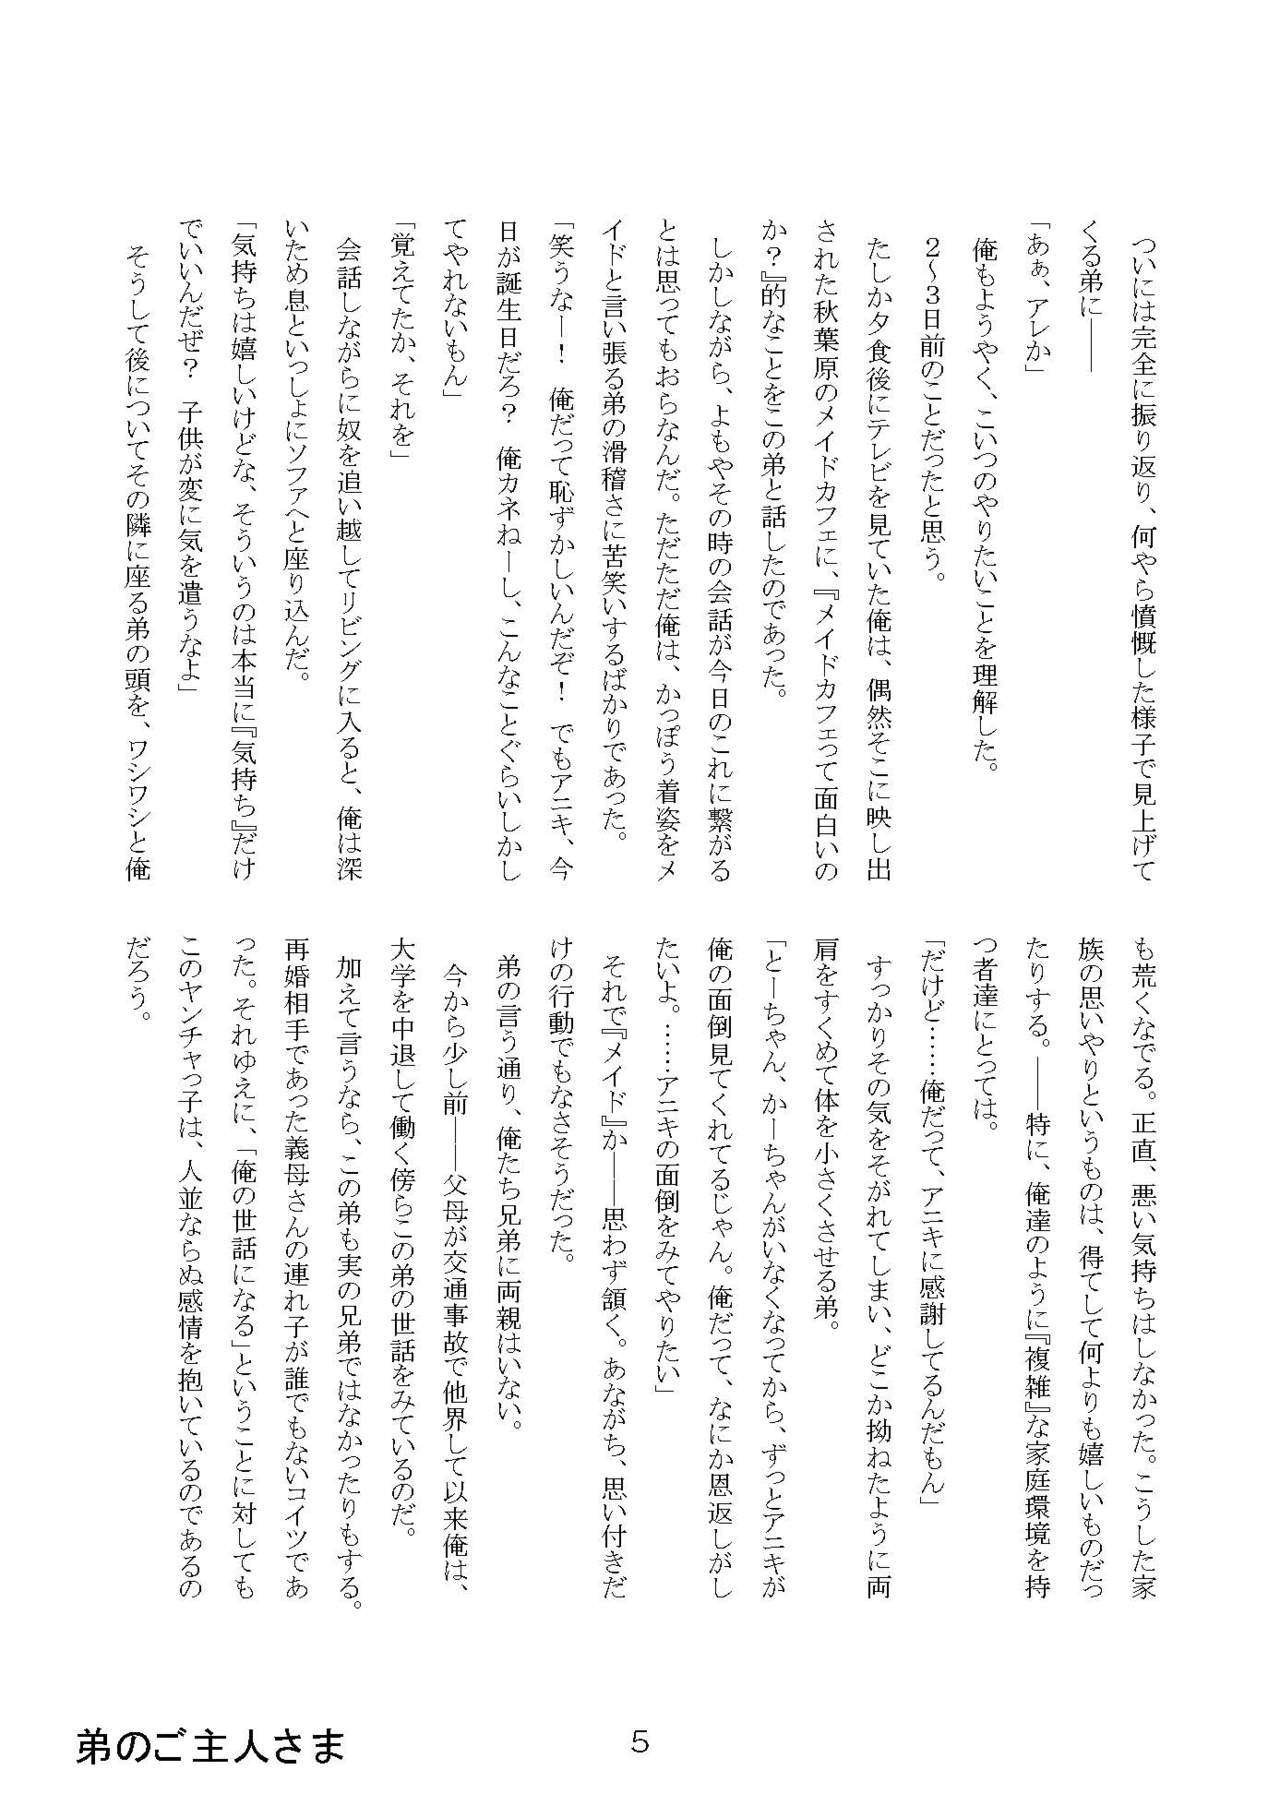 ついには完全に振り返り、何やら憤慨した様子で見上げて
くる弟に――
「あぁ、アレか」
俺もようやく、こいつのやりたいことを理解した。
2～3日前のことだったと思う。
たしか夕食後にテレビを見ていた俺は、偶然そこに映し出
された秋葉原のメイドカフェに、『メイドカフェって面白いの
か？』的なことをこの弟と話したのであった。
しかしながら、よもやその時の会話が今日のこれに繋がる
とは思ってもおらなんだ。ただただ俺は、かっぽう着姿をメ
イドと言い張る弟の滑稽さに苦笑いするばかりであった。
「笑うなー！　俺だって恥ずかしいんだぞ！　でもアニキ、今
日が誕生日だろ？　俺カネねーし、こんなことぐらいしかし
てやれないもん」
「覚えてたか、それを」
会話しながらに奴を追い越してリビングに入ると、俺は深
いため息といっしょにソファへと座り込んだ。
「気持ちは嬉しいけどな、そういうのは本当に『気持ち』だけ
でいいんだぜ？　子供が変に気を遣うなよ」
そうして後についてその隣に座る弟の頭を、ワシワシと俺
も荒くなでる。正直、悪い気持ちはしなかった。こうした家
族の思いやりというものは、得てして何よりも嬉しいものだっ
たりする。――特に、俺達のように『複雑』な家庭環境を持
つ者達にとっては。
「だけど……俺だって、アニキに感謝してるんだもん」
すっかりその気をそがれてしまい、どこか拗ねたように両
肩をすくめて体を小さくさせる弟。
「とーちゃん、かーちゃんがいなくなってから、ずっとアニキが
俺の面倒見てくれてるじゃん。俺だって、なにか恩返しがし
たいよ。……アニキの面倒をみてやりたい」
それで『メイド』か――思わず頷く。あながち、思い付きだ
けの行動でもなさそうだった。
弟の言う通り、俺たち兄弟に両親はいない。
今から少し前――父母が交通事故で他界して以来俺は、
大学を中退して働く傍らこの弟の世話をみているのだ。
加えて言うなら、この弟も実の兄弟ではなかったりもする。
再婚相手であった義母さんの連れ子が誰でもないコイツであ
った。それゆえに、「俺の世話になる」ということに対しても
このヤンチャっ子は、人並ならぬ感情を抱いているのであるの
だろう。
弟のご主人さま
5